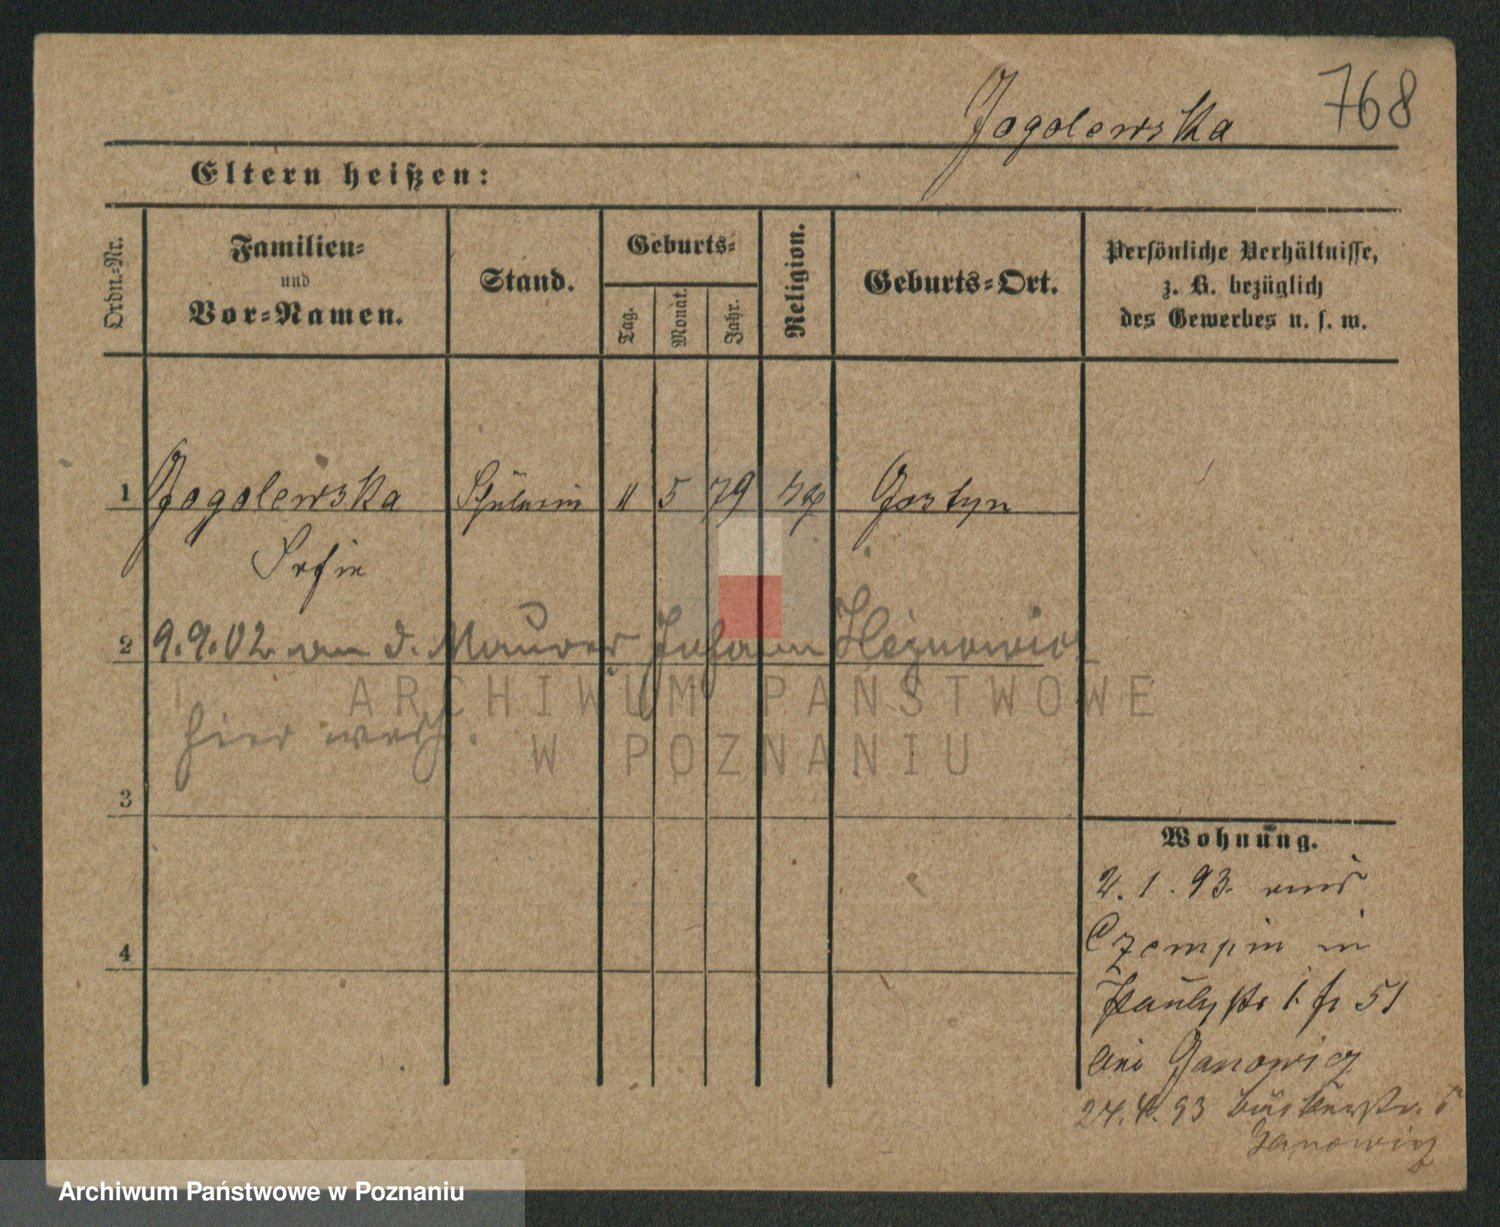 768
Jogolewska
Eltern heißen:
Ordn.-Nr.
Familien-
und
Vor-Namen.
Stand.
Geburts-
Tag.
Monat.
Jahr.
Religion.
Geburts-Ort.
Persönliche Verhältnisse,
z. B. bezüglich
des Gewerbes u. s. w.
1 Jogolewska Schülerin 11 5 79 Gostyn
Sofie
2 9.9.02 an d. Maurer Johann
hier verh.
3
4
Wohnung.
2.1.93 aus
Czempin in
1 fr 51
bei Janowicz
24.4.93
Janowicz
ARCHIWUM PAŃSTWOWE
W POZNANIU
Archiwum Państwowe w Poznaniu